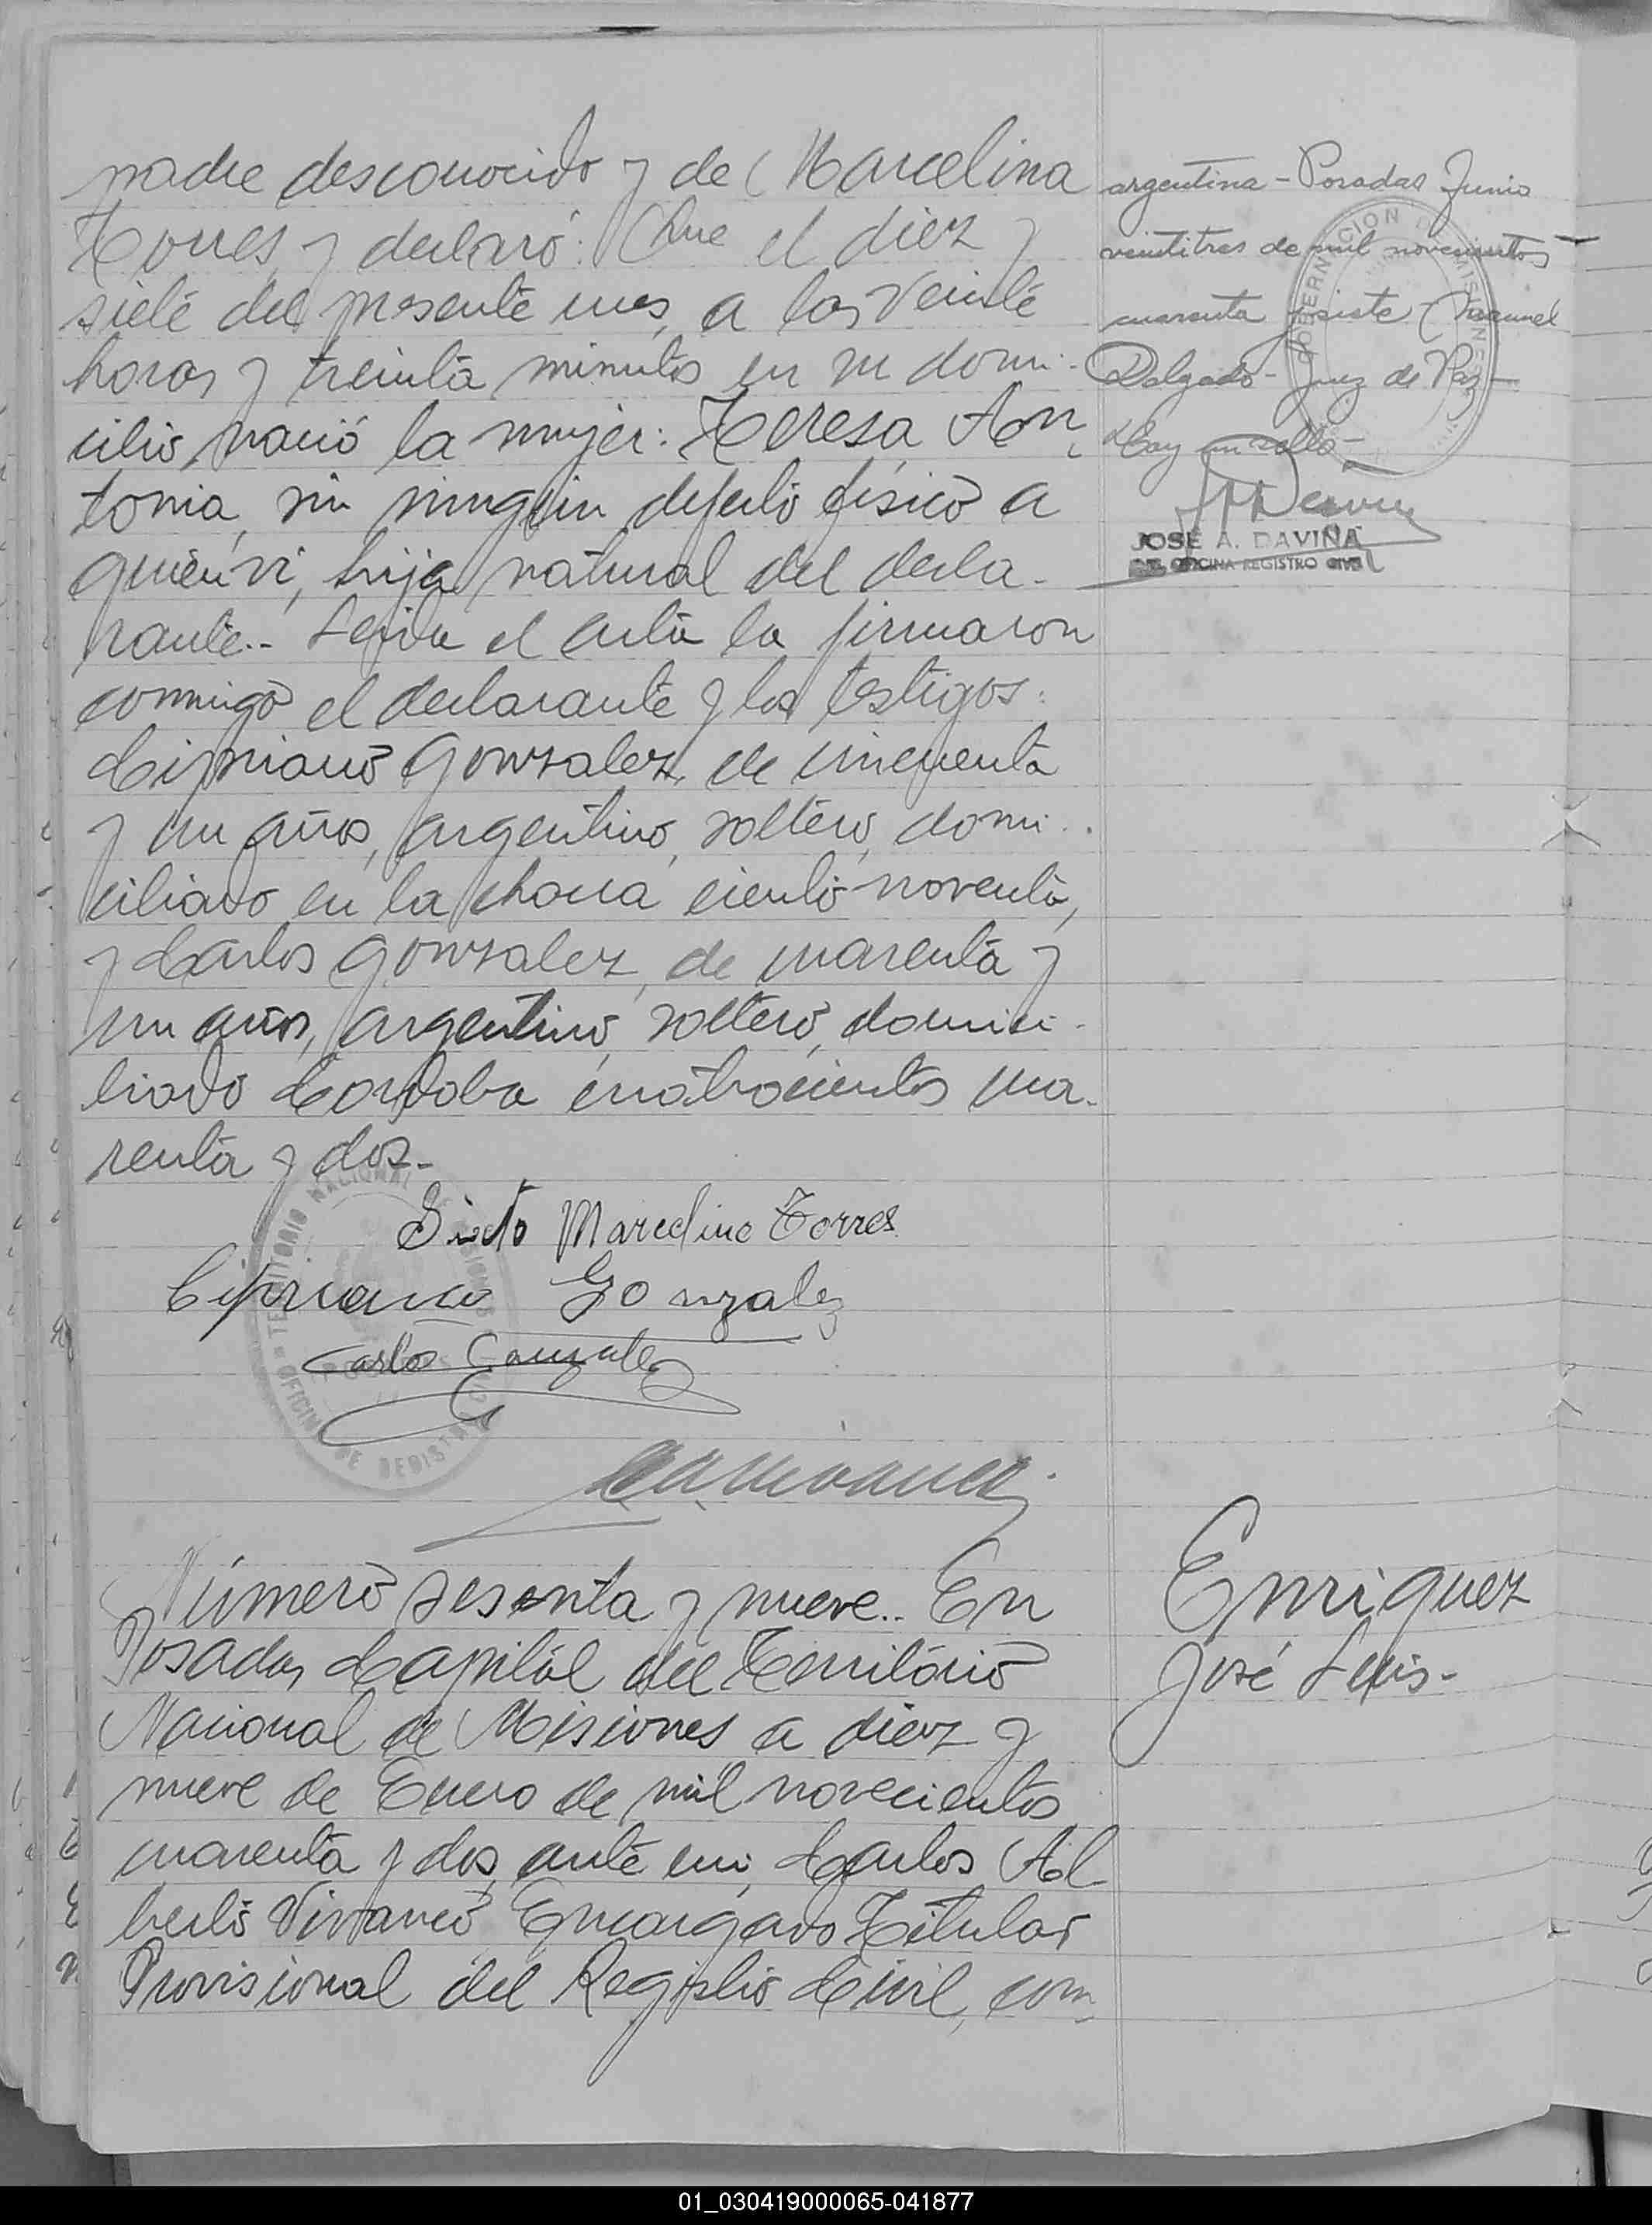 padre desconocido y de Marcelina
Torres y declaró: Que el diez y
siete del presente mes, a las veinte
horas y treinta minutos en su domi-
cilio, nació la mujer: Teresa An-
tonia, sin ningún defecto físico a
quien vi, hija natural del decla-
rante.- Leida el acta la firmaron
conmigo el declarante y los testigos:
Cipriano Gonzalez, de cincuenta
y un años, argentino, soltero, domi-
ciliado en la chacra ciento noventa,
y Carlos Gonzalez, de cuarenta y
un años, argentino, soltero, domici-
liado Cordoba cuatrocientos cua-
renta y dos.-
Sixto Marcelino Torres
Cipriano Gonzalez
Carlos Gonzalez
TERRITORIO NACIONAL DE MISIONES
OFICINA DE REGISTRO
argentina - Posadas Junio
veintitres de mil novecientos
cuarenta y siete Manuel
Delgado - Juez de Paz -
Hay un sello -
GOBERNACION DE MISIONES
JOSÉ A. DAVIÑA
OFICINA REGISTRO CIVIL
Número sesenta y nueve.- En
Posadas, Capital del Territorio
Nacional de Misiones a diez y
nueve de Enero de mil novecientos
cuarenta y dos, ante mi, Carlos Al-
berto Vivanco Encargado Titular
Provisional del Registro Civil, com-
Enriquez
José Luis-
01_030419000065-041877